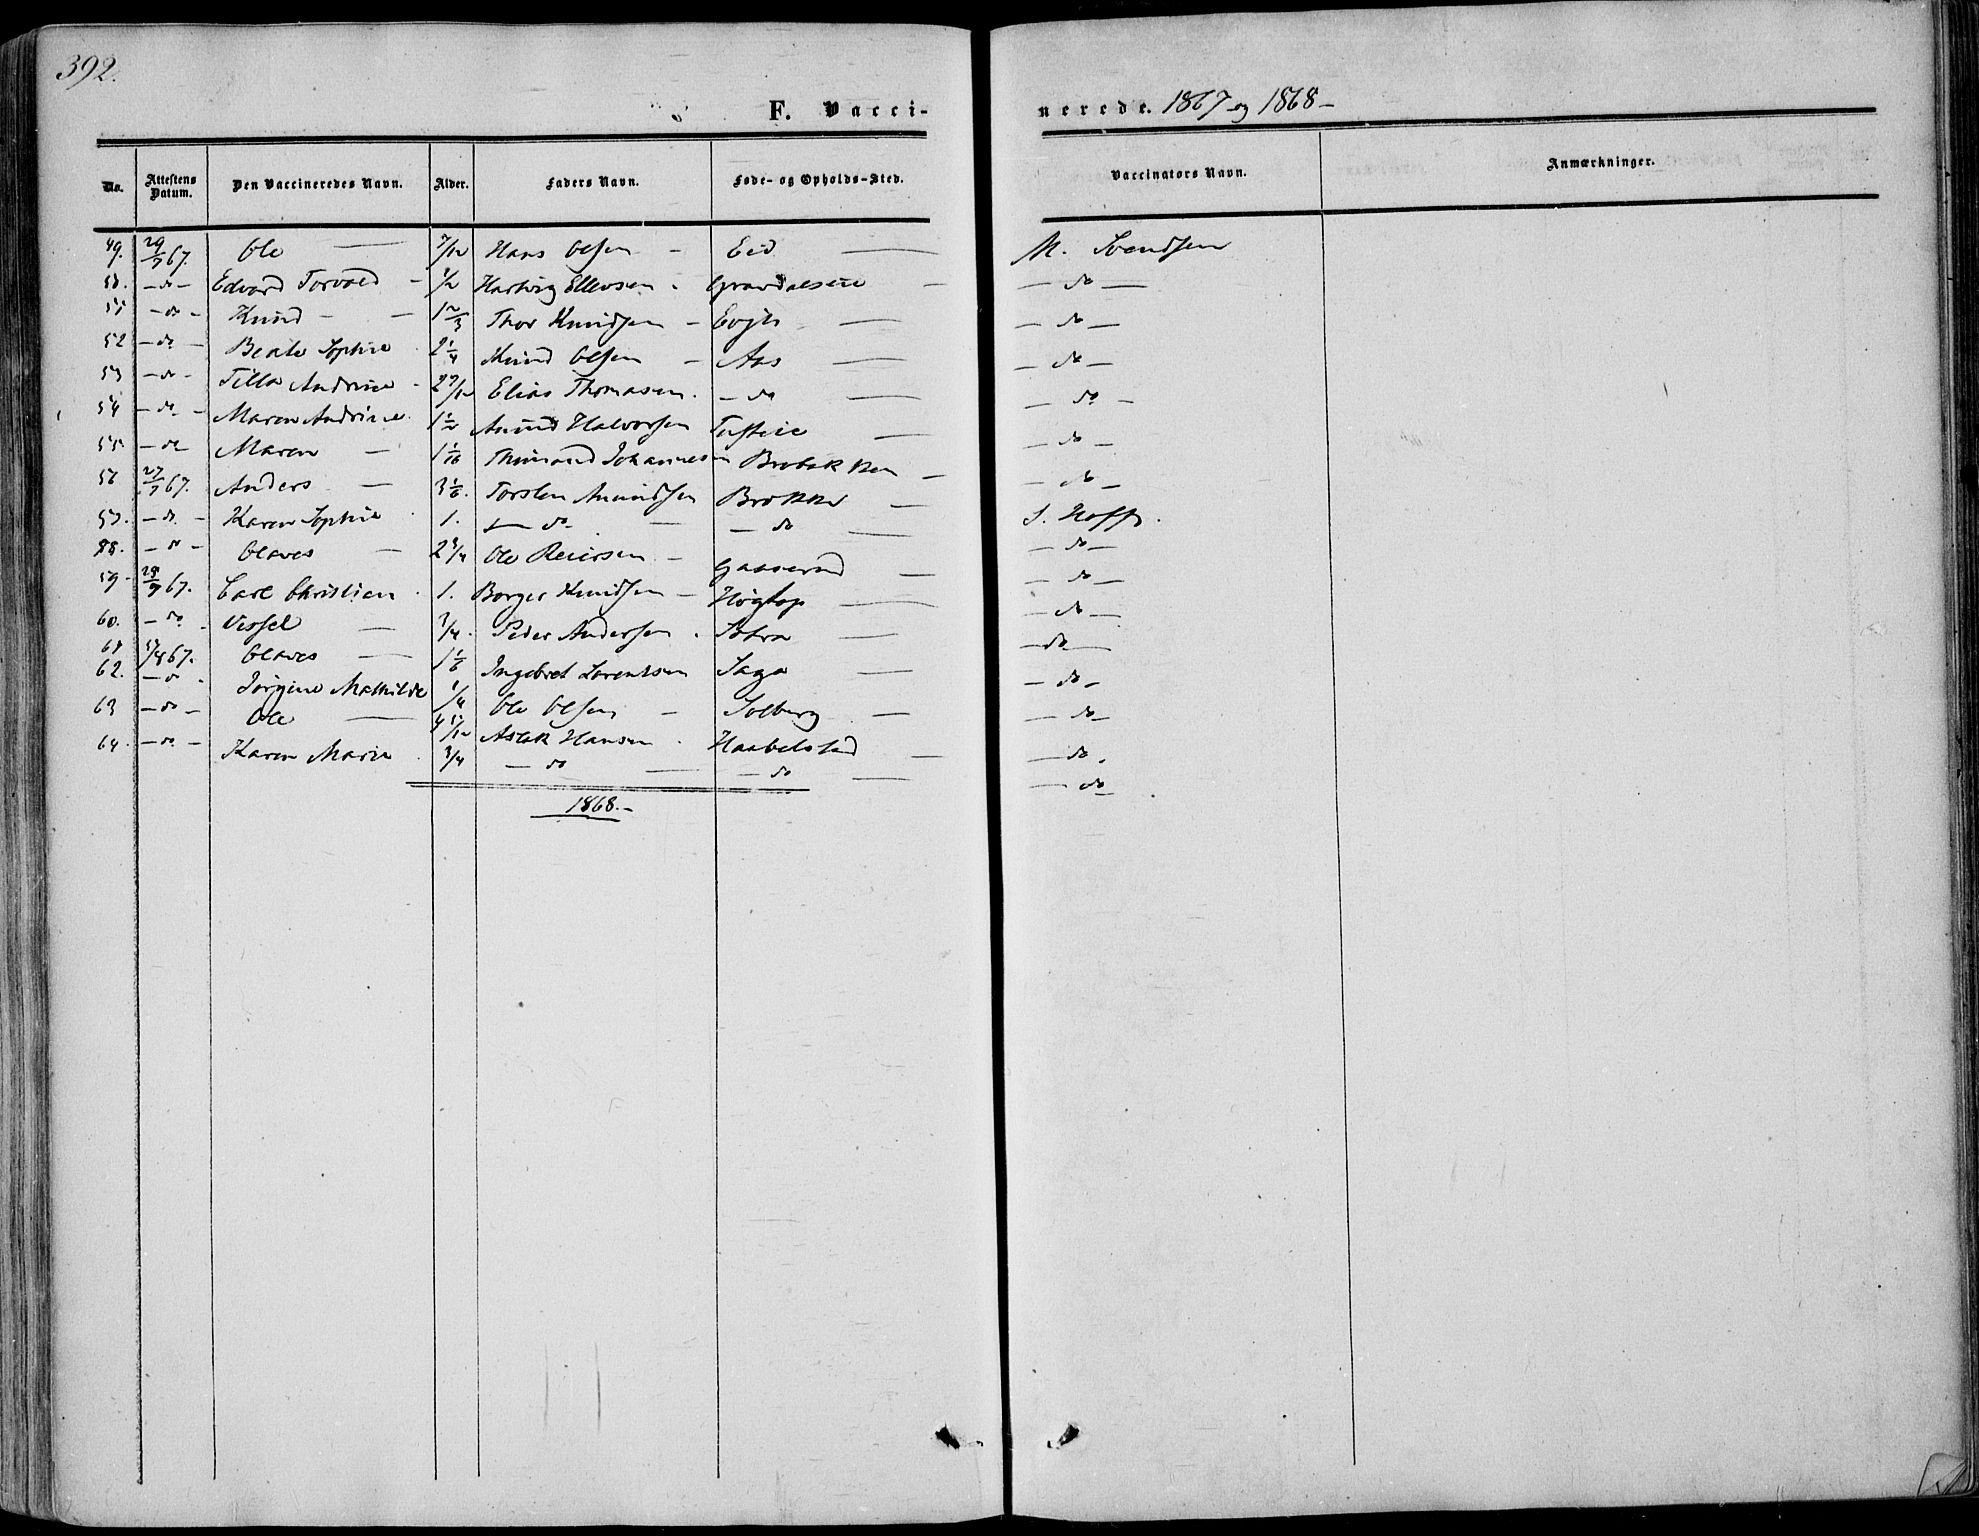 392.
F. Vacci-
nerede. 1867 og 1868 -
No. | Attestens Datum. | Den Vaccineredes Navn. | Alder. | Faders Navn. | Føde- og Opholds-Sted. | Vaccinators Navn. | Anmærkninger.
49. | 29/7 67. | Ole — | 7/12 | Hans Olsen - | Eid — | M. Svendsen
50. | - do - | Edvard Torvald - | 1/2 | Hartvig Ellevsen - | — | - do -
51 | - do - | Knud - | 1 2/3 | Thor Knudsen - | — | - do -
52 | - do - | Beate Sophie | 2 1/4 | Knud Olsen - | Aas — | - do -
53 | - do - | Tilla Andrine - | 2 7/12 | Elias Thomasen. | - do — | - do -
54 | - do - | Maren Andrine | 1 1/2 | Amund Halvorsen | — | - do -
55 | - do - | Maren - | | Johannesen | Brobakken - | - do -
56 | 27/7 67. | Anders - | 3 1/6. | Torsten Amundsen | Brokke — | S. Hoff.
57. | - do. - | Karen Sophie | 1. | - do — | - do | - do -
58. | - do - | Olaves - | 2 3/4 | Ole Reiersen - | Gaaserud — | - do -
59. | 29/7 67. | Carl Christian | 1. | Borger Knudsen - | Høgtop — | - do -
60. | - do. | Vessel — | 3/4. | Peder Andersen. | — | - do —
61 | /8 67. | Olaves — | 1 1/6 | Ingebret Lorentsen | Saga — | - do -
62. | - do | Jørgine Mathilde | 1/4 | Ole Olsen - | Solberg — | - do -
63 | - do - | Ole — | 4 11/12 | Aslak Hansen. | Haabelstad — | - do.
64. | - do - | Karen Marie | 3/4 | - do — | - do — | - do -
1868. -